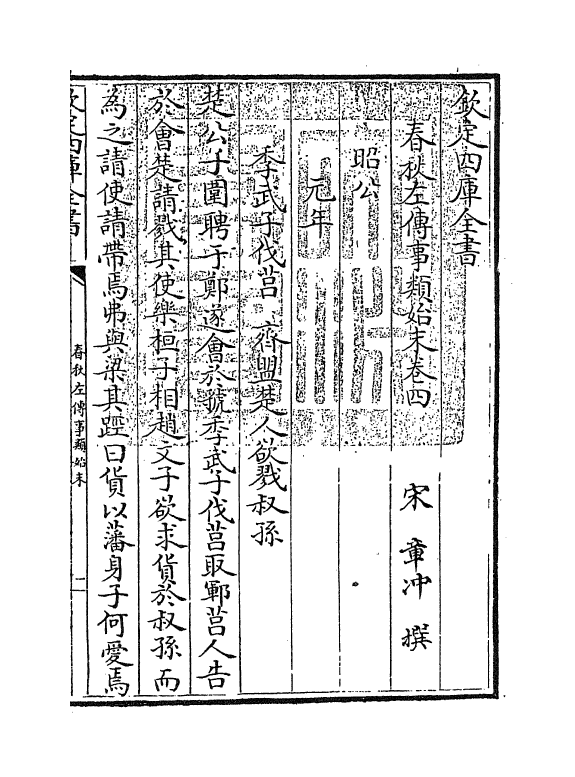 欽定四庫全書
春秋左傳事類始末卷四
宋 章沖 撰
昭公
元年
季武子伐莒 齊盟楚人欲戮叔孫
楚公子圍聘于鄭遂會於虢季武子伐莒取鄆莒人告
於會楚請戮其使樂桓子相趙文子欲求貨於叔孫而
為之請使請帶焉弗與梁其踁曰貨以藩身子何愛焉
欽定四庫全書
春秋左傳事類始末